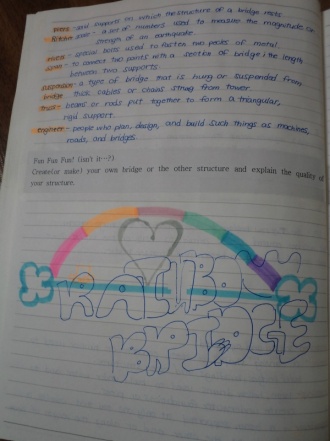 piers - and supports on which the structure of a bridge rests
Richter scale - a set of numbers used to measure the magnitude or
strength of an earthquake.
rivets - special bolts used to fasten two pieces of metal
span - to connect two points with a section of bridge; the length
between two supports
suspension - a type of bridge that is hung or suspended from
bridge thick cables or chains strung from tower.
truss - beams or rods put together to form a triangular,
rigid support.
engineers - people who plan, design, and build such things as machines,
roads, and bridges.
Fun Fun Fun! (isn't it~?)
Create(or make) your own bridge or the other structure and explain the quality of
your structure.
RAINBOW
BRIDGE